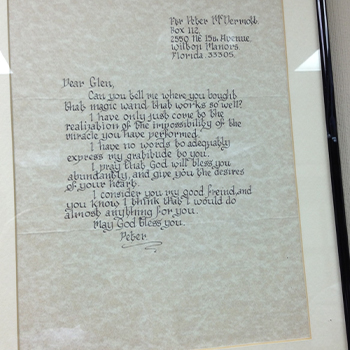 Per Peter McDermott
Box 112
2550 NE 15th Avenue
Wilton Manors
Florida 33305.
Dear Glen,
Can you tell me where you bought
that magic wand that works so well?
I have only just come to the
realization of the impossibility of the
miracle you have performed.
I have no words to adequately
express my gratitude to you.
I pray that God will bless you
abundantly, and give you the desires
of your heart.
I consider you my good friend, and
you know I think that I would do
almost anything for you.
May God bless you.
Peter